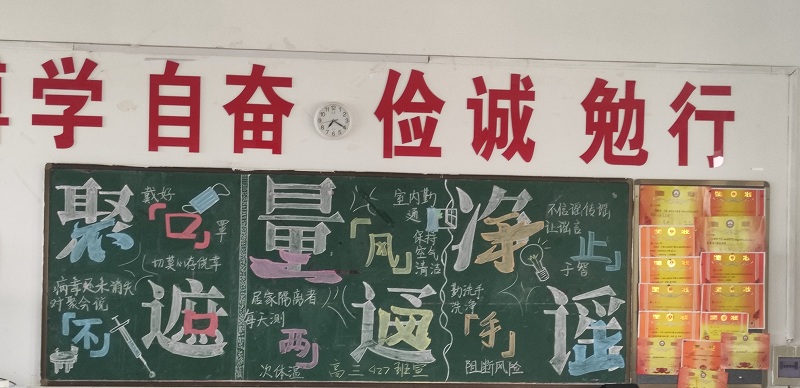 学 自 奋 俭 诚 勉 行
聚
戴好
「口」
罩
切莫心存侥幸
病毒还未消失
对聚会说
「不」
遮口
量
室内勤
通
「风」
保持
空气
清洁
居家隔离者
每天测
「两」
次体温
通
高三(27)班宣
净
不信谣传谣
让谣言
「止」
于智
勤洗手
洗净
「手」
阻断风险
谣